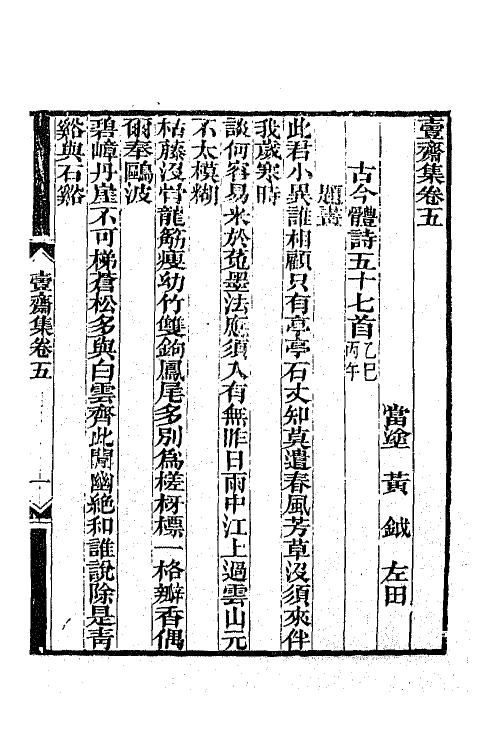 壹齋集卷五
當塗 黃 鉞 左田
古今體詩五十七首乙巳丙午
題畫
此君小異誰相顧只有亭亭石丈知莫遣春風芳草沒須來伴
我歲寒時
談何容易米於菟墨法應須入有無昨日雨中江上過雲山元
不太模糊
枯藤沒骨龍筋瘦幼竹雙鉤鳳尾多別爲槎枒標一格瓣香偶
爾奉鷗波
碧嶂丹崖不可梯蒼松多與白雲齊此間幽絶和誰說除是靑
谿與石谿
壹齋集卷五
一